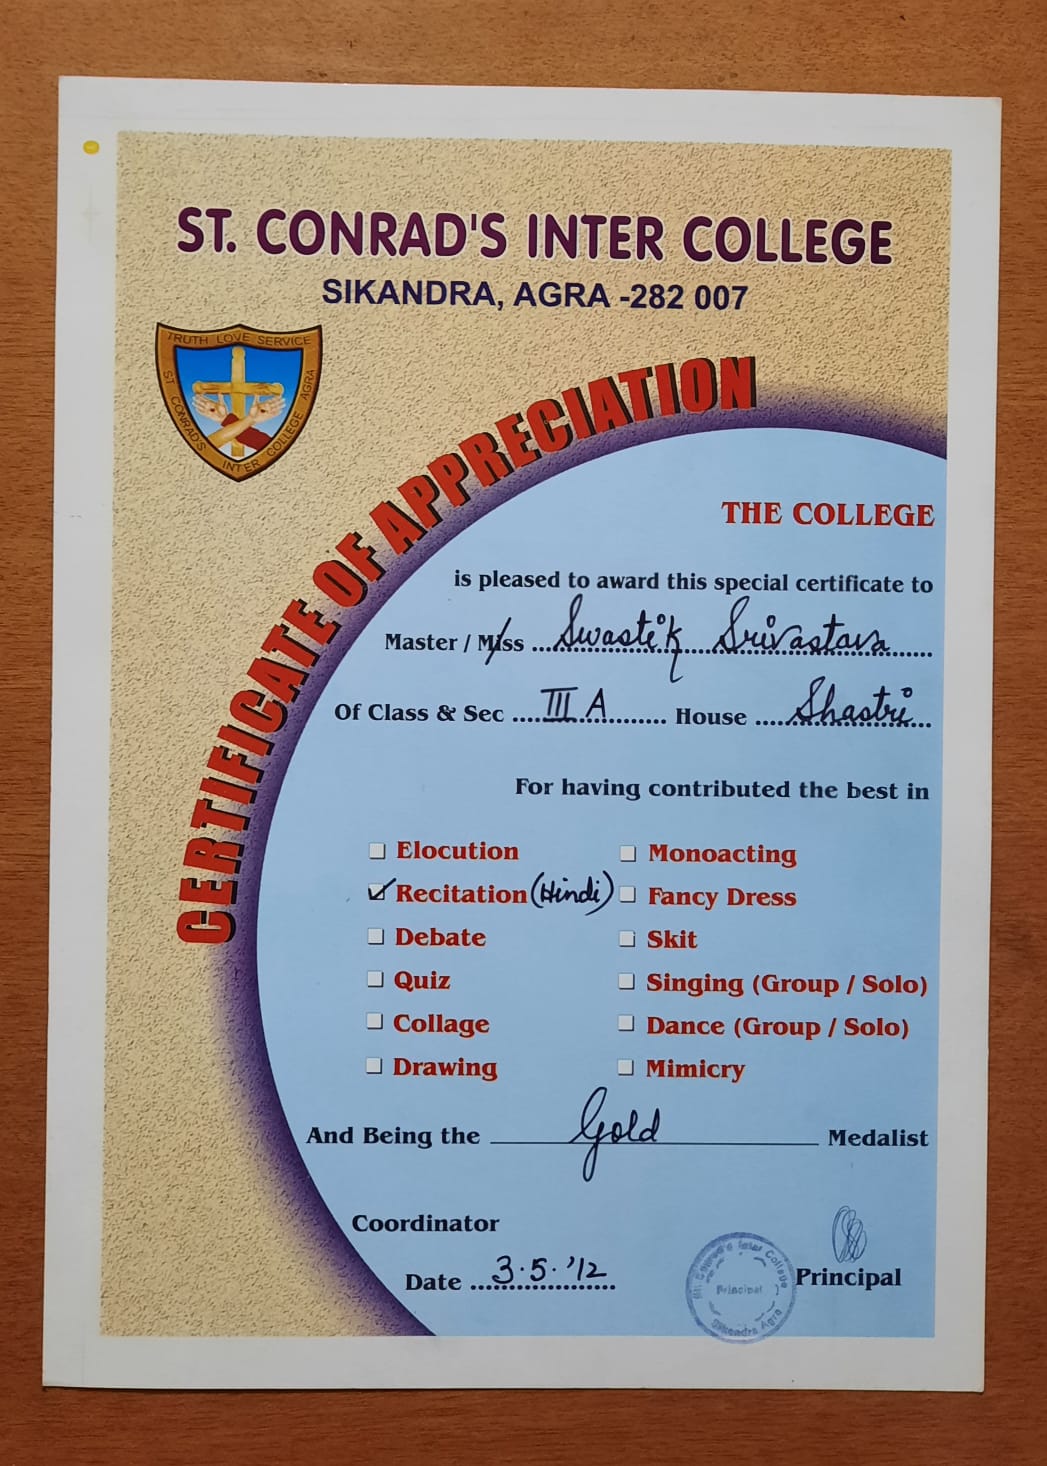 ST. CONRAD'S INTER COLLEGE
SIKANDRA, AGRA -282 007
TRUTH LOVE SERVICE
ST CONRAD'S INTER COLLEGE AGRA
CERTIFICATE OF APPRECIATION
THE COLLEGE
is pleased to award this special certificate to
Master / Miss Swastik Srivastava
Of Class & Sec III A House Shastri
For having contributed the best in
Elocution Monoacting
Recitation (Hindi) Fancy Dress
Debate Skit
Quiz Singing (Group / Solo)
Collage Dance (Group / Solo)
Drawing Mimicry
And Being the Gold Medalist
Coordinator
Date 3.5.'12 Principal
St. Conrad's Inter College
Principal
Sikandra Agra